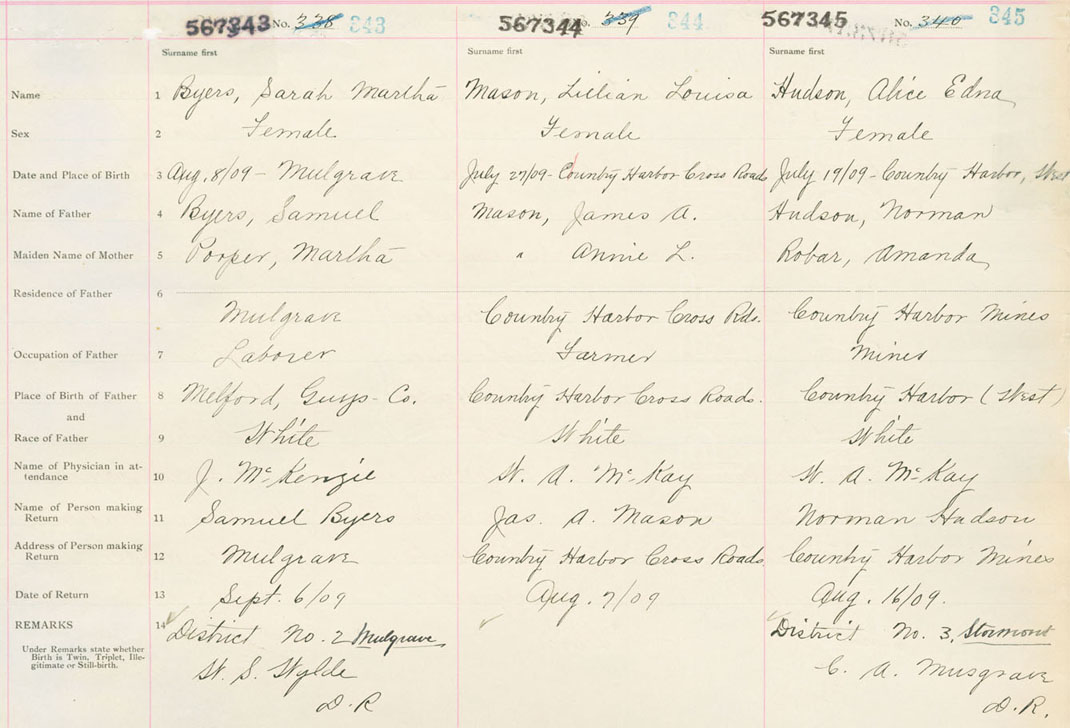 567343 No. 338 343 567344 No. 339 344 567345 No. 340 345
Surname first Surname first Surname first
Name 1 Byers, Sarah Martha Mason, Lilian Louisa Hudson, Alice Edna
Sex 2 Female Female Female
Date and Place of Birth 3 Aug. 8/09 - Mulgrave July 27/09 - Country Harbor Cross Roads July 19/09 - Country Harbor, West
Name of Father 4 Byers, Samuel Mason, James A. Hudson, Norman
Maiden Name of Mother 5 Pooper, Martha " Annie L. Robar, Amanda
Residence of Father 6
Mulgrave Country Harbor Cross Rds. Country Harbor Mines
Occupation of Father 7 Laborer Farmer Mines
Place of Birth of Father 8 Melford, Guys- Co. Country Harbor Cross Roads. Country Harbor (West)
and
Race of Father 9 White White White
Name of Physician in at-
tendance 10 J. McKenzie W. A. McKay W. A. McKay
Name of Person making
Return 11 Samuel Byers Jas. A. Mason Norman Hudson
Address of Person making
Return 12 Mulgrave Country Harbor Cross Roads Country Harbor Mines
Date of Return 13 Sept. 6/09 Aug. 7/09 Aug. 16/09.
REMARKS 14 District No. 2 Mulgrave District No. 3, Stormont
Under Remarks state whether
Birth is Twin, Triplet, Ille-
gitimate or Still-birth.
W. S. Wylde C. A. Musgrave
D. R D. R.